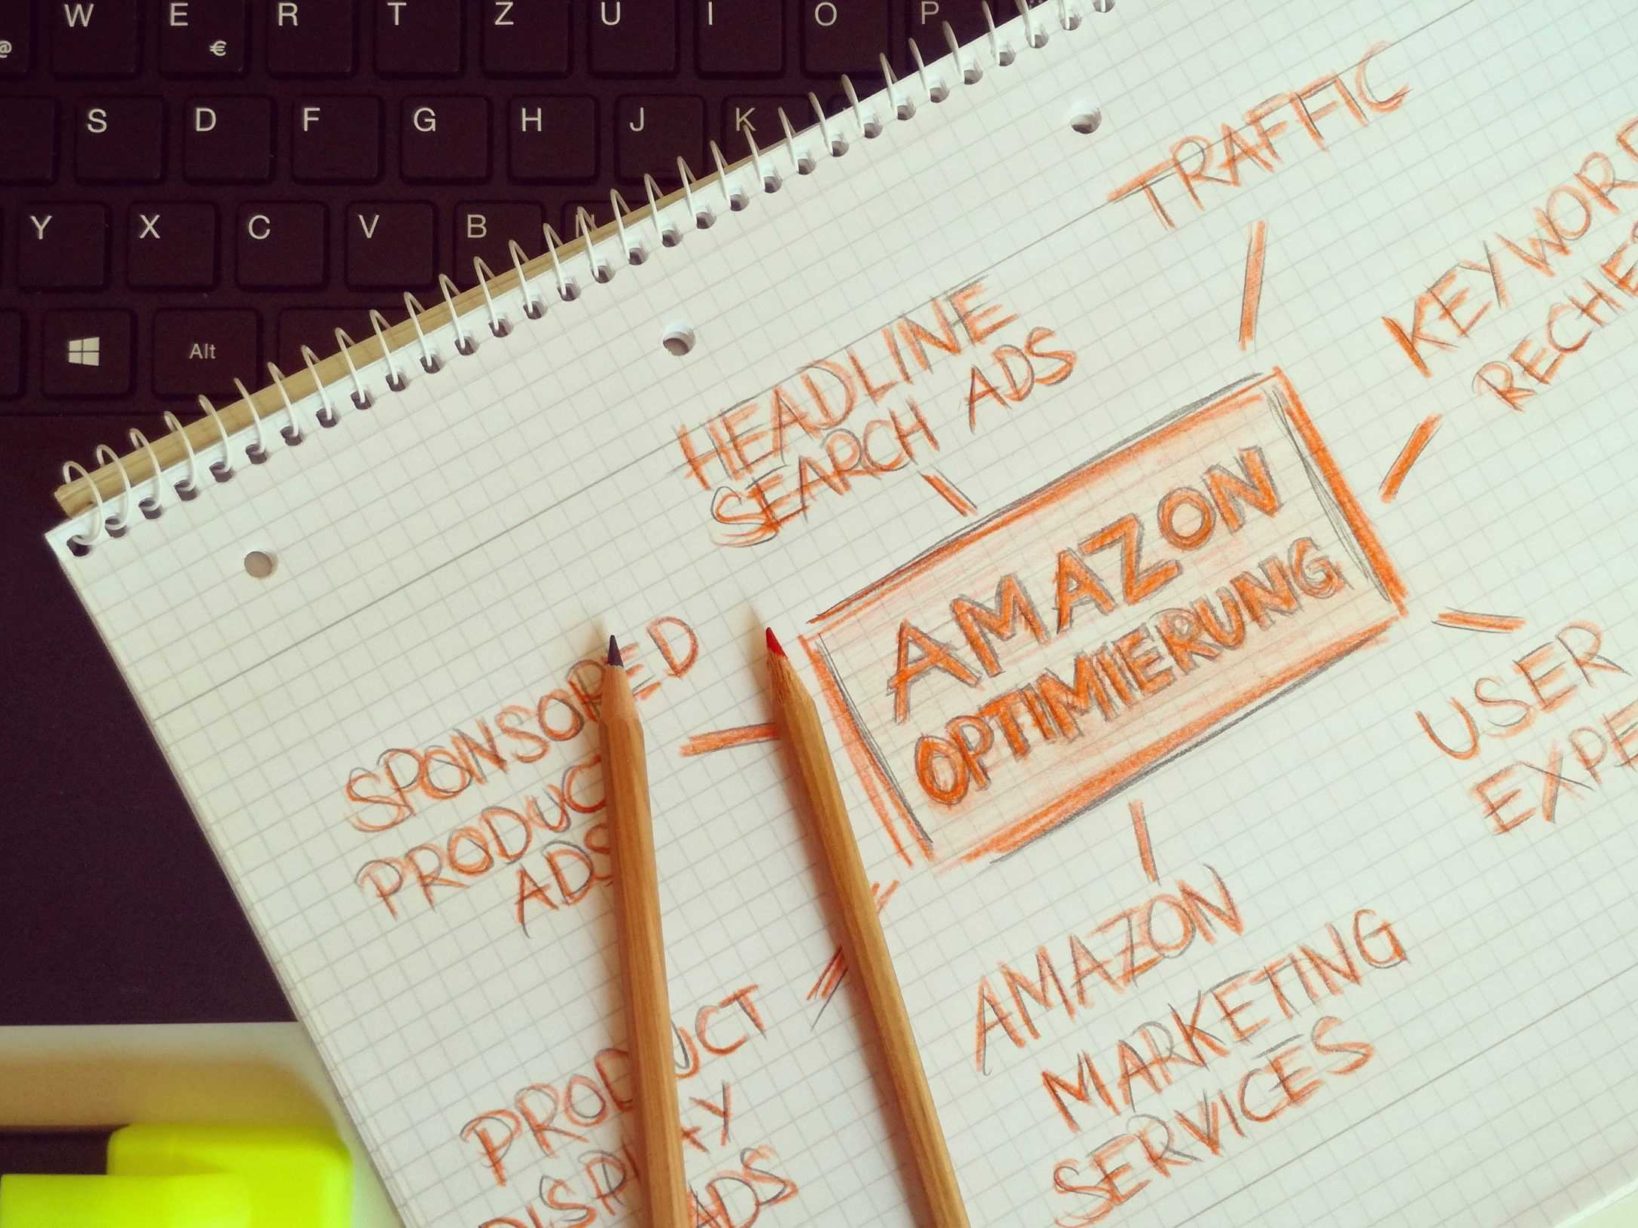 W E R T Z U I O P
@ €
S D F G H J K
Y X C V B N
Alt
TRAFFIC
KEYWORD
RECHE
HEADLINE
SEARCH ADS
AMAZON
OPTIMIERUNG
SPONSORED
PRODUC
ADS
USER
EXPE
AMAZON
MARKETING
SERVICES
PRODUCT
ADS